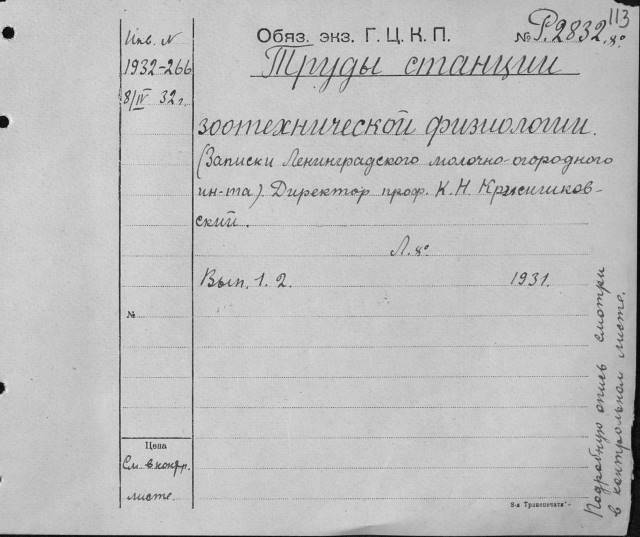 113
Инв. N
Обяз. экз. Г. Ц. К. П.
№ P.2832. 8°
1932-266
8/IV 32 г.
Труды станции
зоотехнической физиологии.
(Записки Ленинградского молочно-огородного
ин-та). Директор проф. К. Н. Кржишков-
ский.
Л. 8°
Вып. 1. 2. 1931.
№
Цена
См. в контр.
листе.
Подробную опись смотри
в контрольном листе.
8-я Транспечать